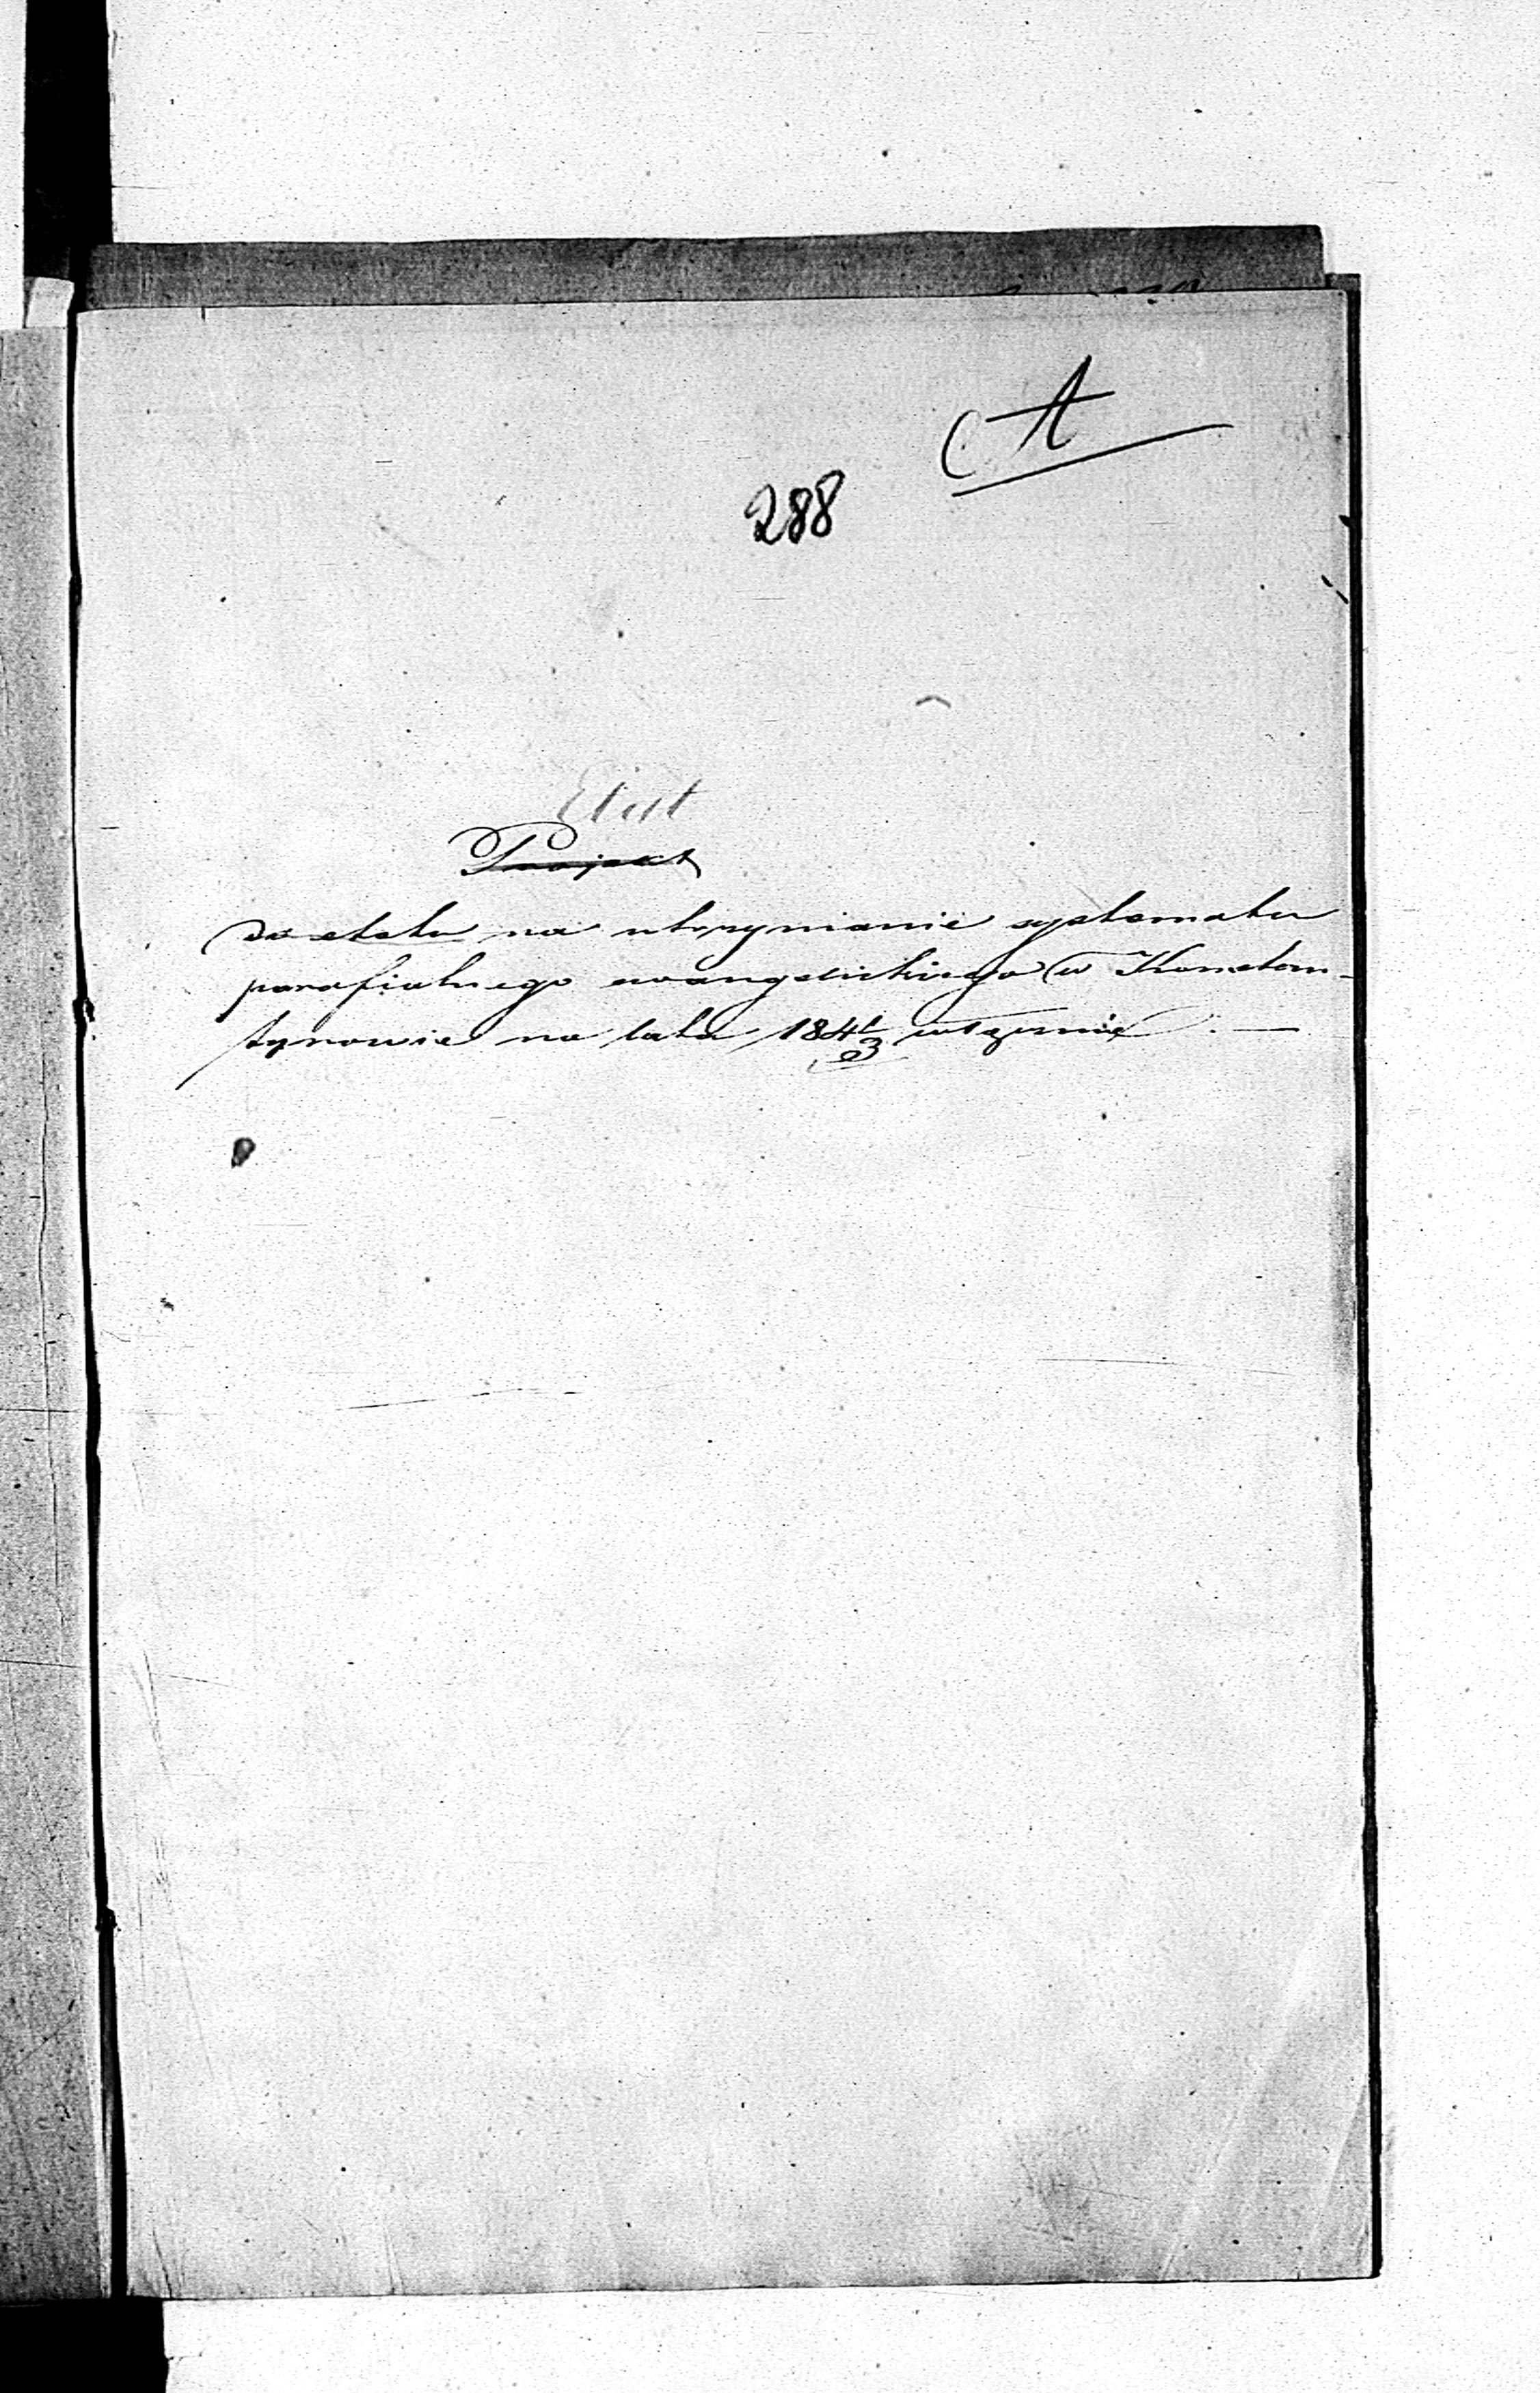 A
288
Etat
Projekt
do etatu na utrzymanie systematu
parafialnego ewangelickiego w Konstan-
tynowie na lata 184 1/3 włącznie. —